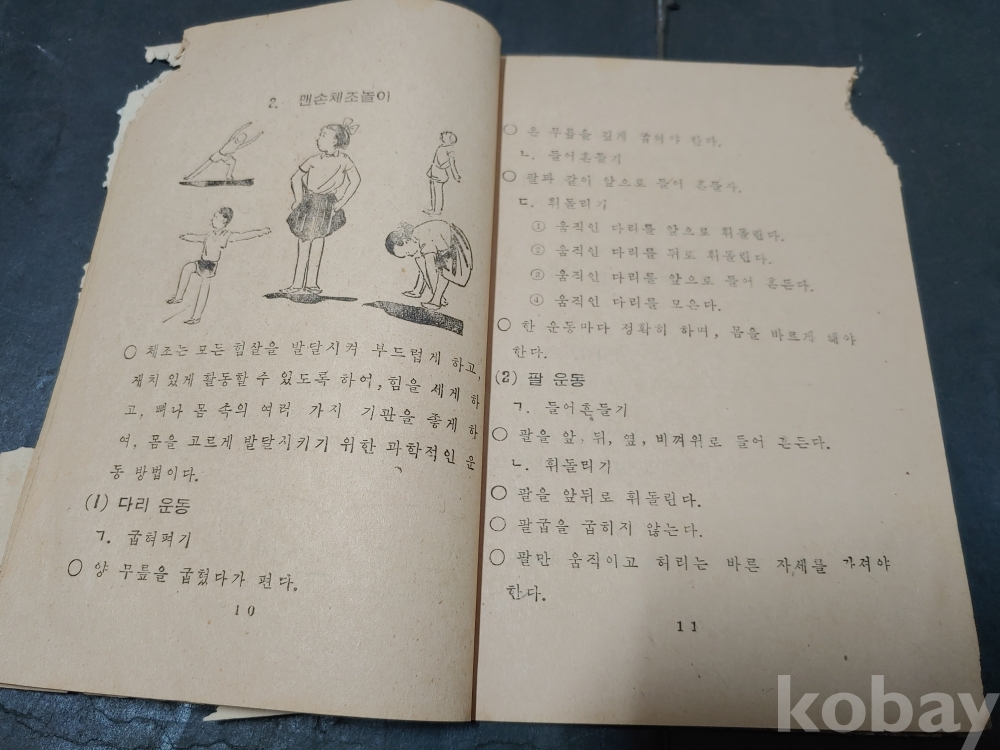 2. 맨손체조놀이
○ 체조는 모든 힘살을 발달시켜 부드럽게 하고,
재치 있게 활동할 수 있도록 하여, 힘을 세게 하
고, 뼈나 몸 속의 여러 가지 기관을 좋게 하
여, 몸을 고르게 발달시키기 위한 과학적인 운
동 방법이다.
(1) 다리 운동
ㄱ. 굽혀펴기
○ 양 무릎을 굽혔다가 편다.
10
○ 온 무릎을 깊게 굽혀야 한다.
ㄴ. 들어흔들기
○ 팔과 같이 앞으로 들어 흔들자.
ㄷ. 휘돌리기
① 움직인 다리를 앞으로 휘돌린다.
② 움직인 다리를 뒤로 휘돌린다.
③ 움직인 다리를 앞으로 들어 흔든다.
④ 움직인 다리를 모은다.
○ 한 운동마다 정확히 하며, 몸을 바르게 해야
한다.
(2) 팔 운동
ㄱ. 들어흔들기
○ 팔을 앞, 뒤, 옆, 비껴위로 들어 흔든다.
ㄴ. 휘돌리기
○ 팔을 앞뒤로 휘돌린다.
○ 팔굽을 굽히지 않는다.
○ 팔만 움직이고 허리는 바른 자세를 가져야
한다.
11
kobay